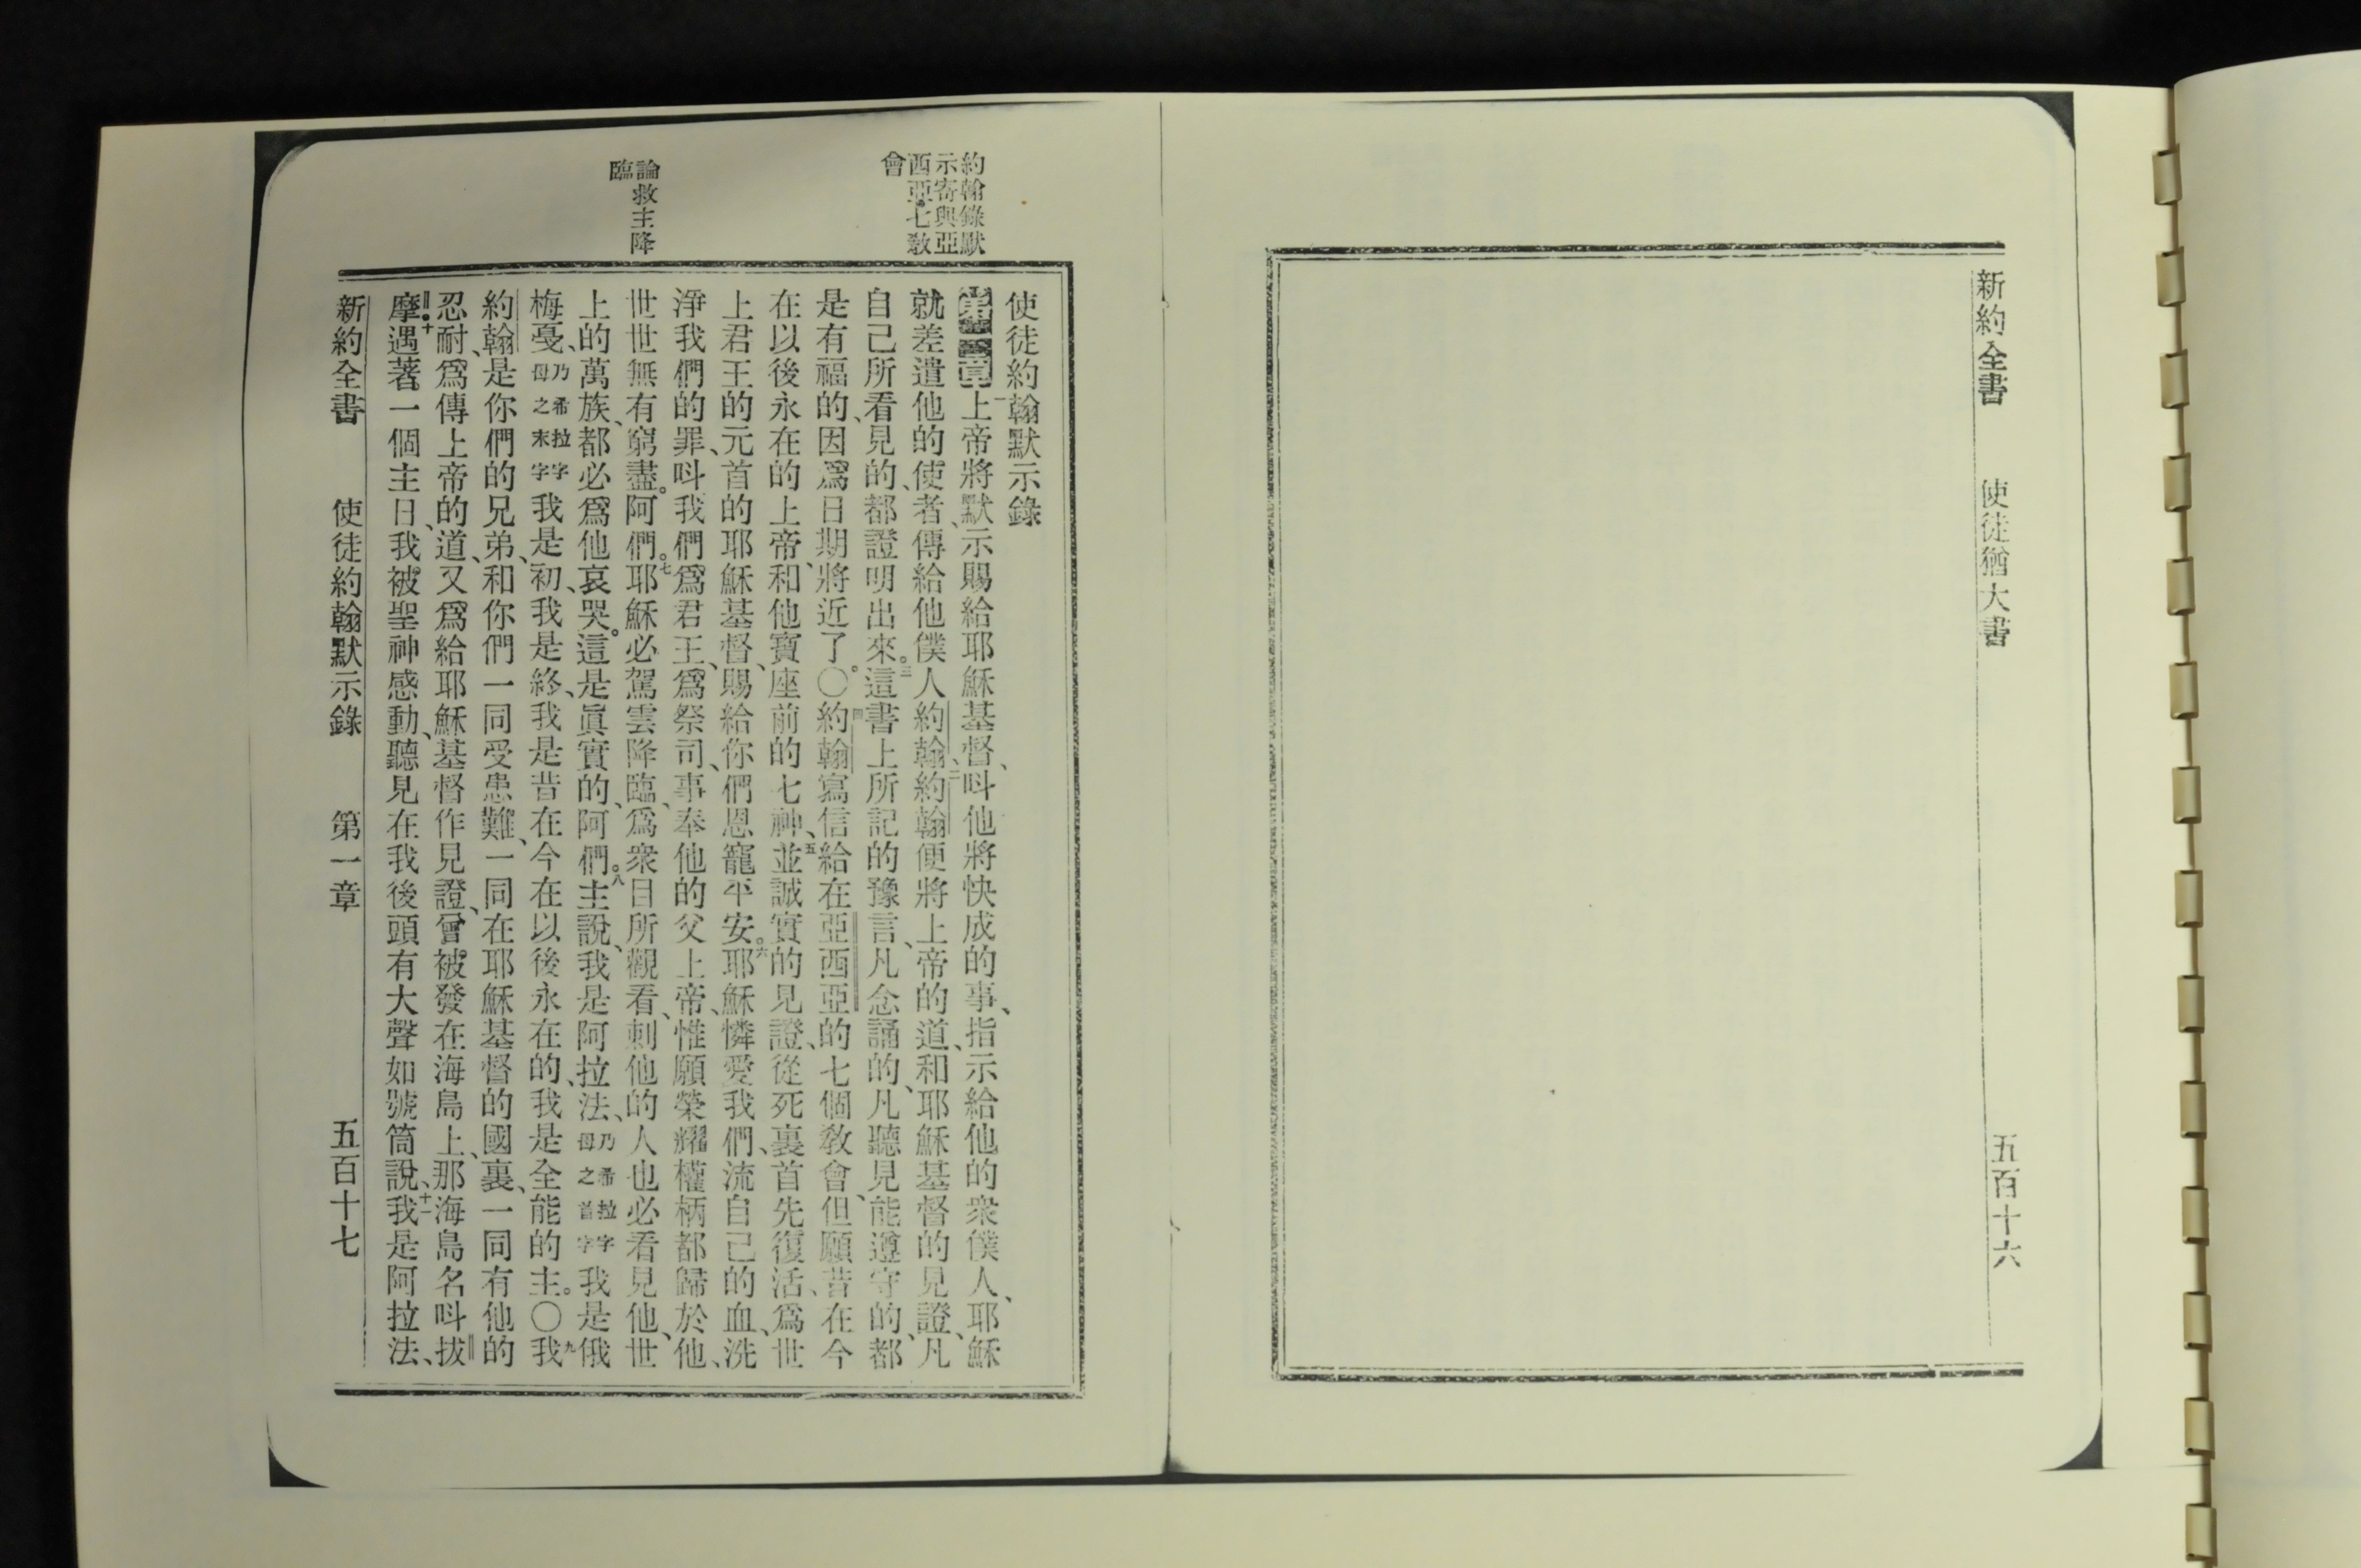 新約全書 使徒猶大書 五百十六
約翰錄默
示寄與亞
西亞七教
會
論救主降
臨
使徒約翰默示錄
第一章一上帝將默示賜給耶穌基督、呌他將快成的事、指示給他的衆僕人、耶穌
就差遣他的使者、傳給他僕人約翰、二約翰便將上帝的道、和耶穌基督的見證、凡
自己所看見的、都證明出來。三這書上所記的豫言、凡念誦的、凡聽見能遵守的、都
是有福的、因爲日期將近了。〇四約翰寫信給在亞西亞的七個教會、但願昔在今
在以後永在的上帝、和他寶座前的七神、五並誠實的見證、從死裏首先復活、爲世
上君王的元首的耶穌基督、賜給你們恩寵平安。六耶穌憐愛我們、流自己的血、洗
淨我們的罪、呌我們爲君王、爲祭司、事奉他的父上帝、惟願榮耀權柄都歸於他、
世世無有窮盡。阿們。七耶穌必駕雲降臨、爲衆目所觀看、刺他的人也必看見他、世
上的萬族、都必爲他哀哭。這是眞實的、阿們。八主說、我是阿拉法、乃希拉字母之首字我是俄
梅戞、乃希拉字母之末字我是初、我是終、我是昔在今在以後永在的、我是全能的主。〇九我
約翰是你們的兄弟、和你們一同受患難、一同在耶穌基督的國裏、一同有他的
忍耐、爲傳上帝的道、又爲給耶穌基督作見證、曾被發在海島上、那海島名呌拔
摩。十遇著一個主日、我被聖神感動、聽見在我後頭有大聲如號筒說、十一我是阿拉法、
新約全書 使徒約翰默示錄 第一章 五百十七